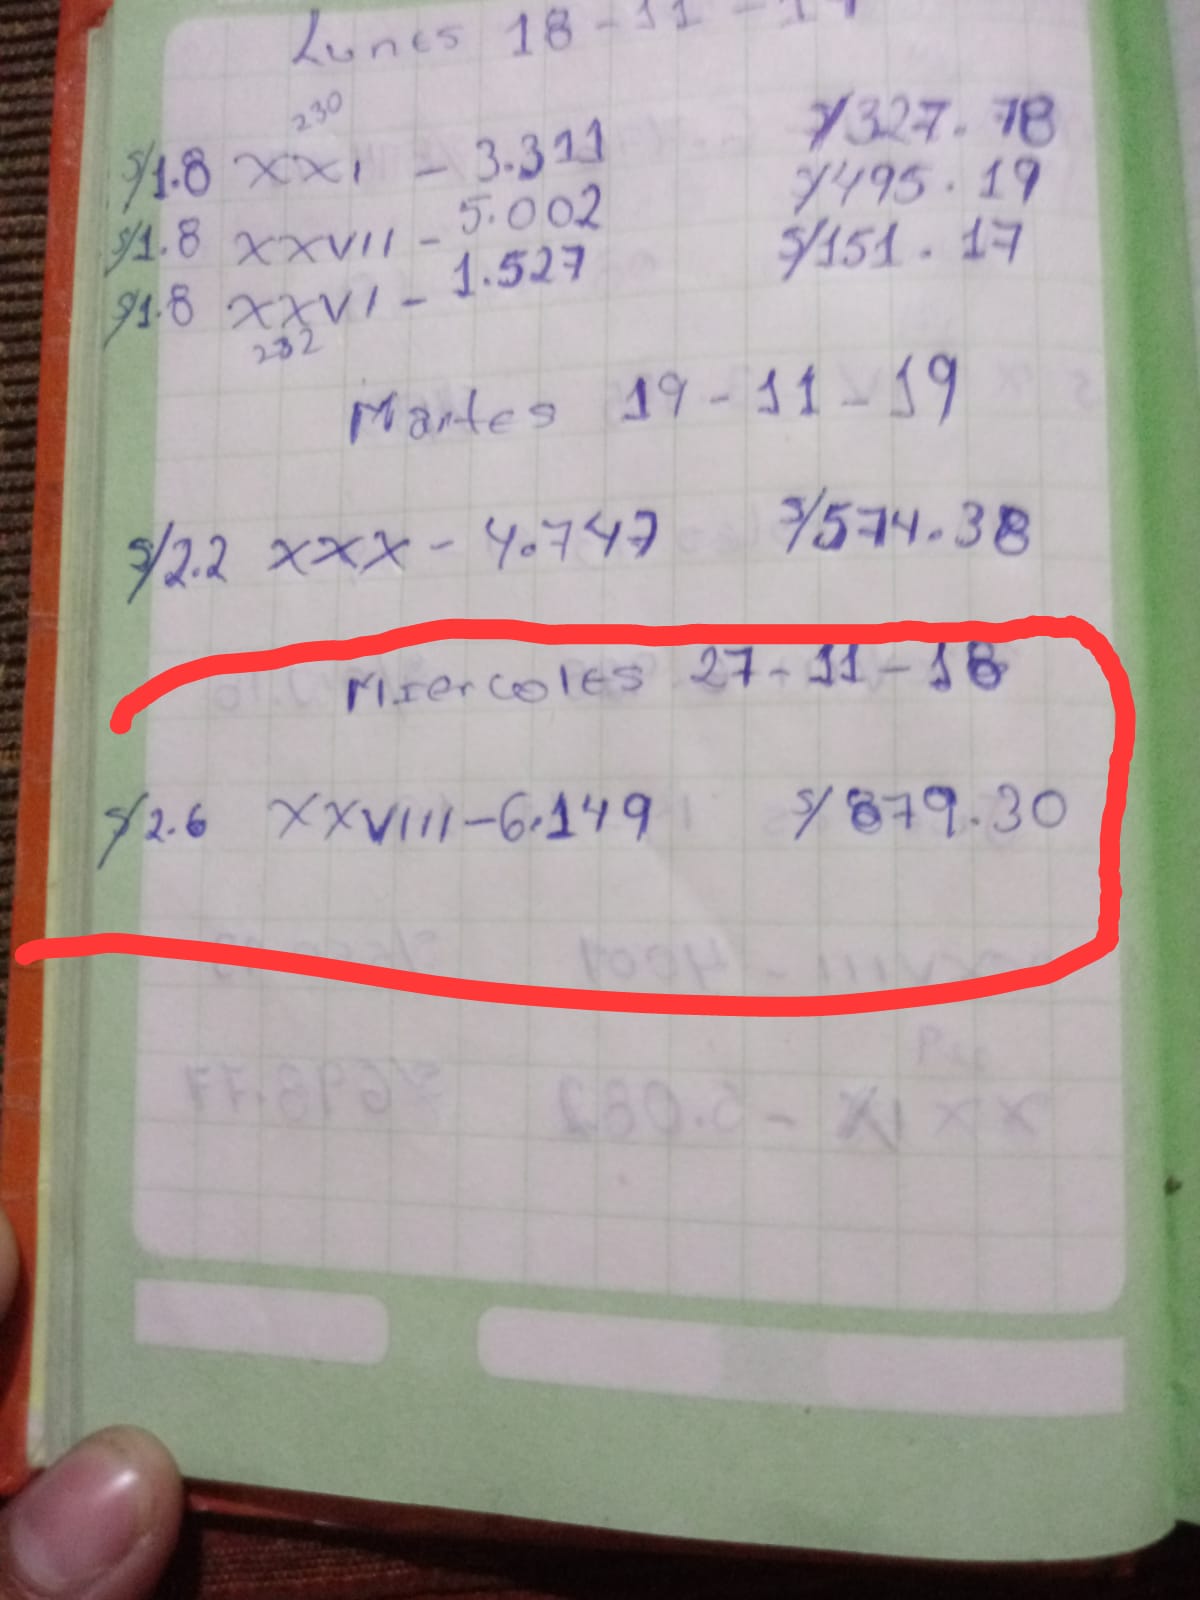 Lunes 18-11-19
230
S/1.8 XXI - 3.311 S/327.78
S/1.8 XXVII - 5.002 S/495.19
S/1.8 XXVI - 1.527 S/151.17
232
Martes 19-11-19
S/2.2 XXX - 4.747 S/574.38
Miercoles 27-11-18
S/2.6 XXVIII-6.149 S/879.30